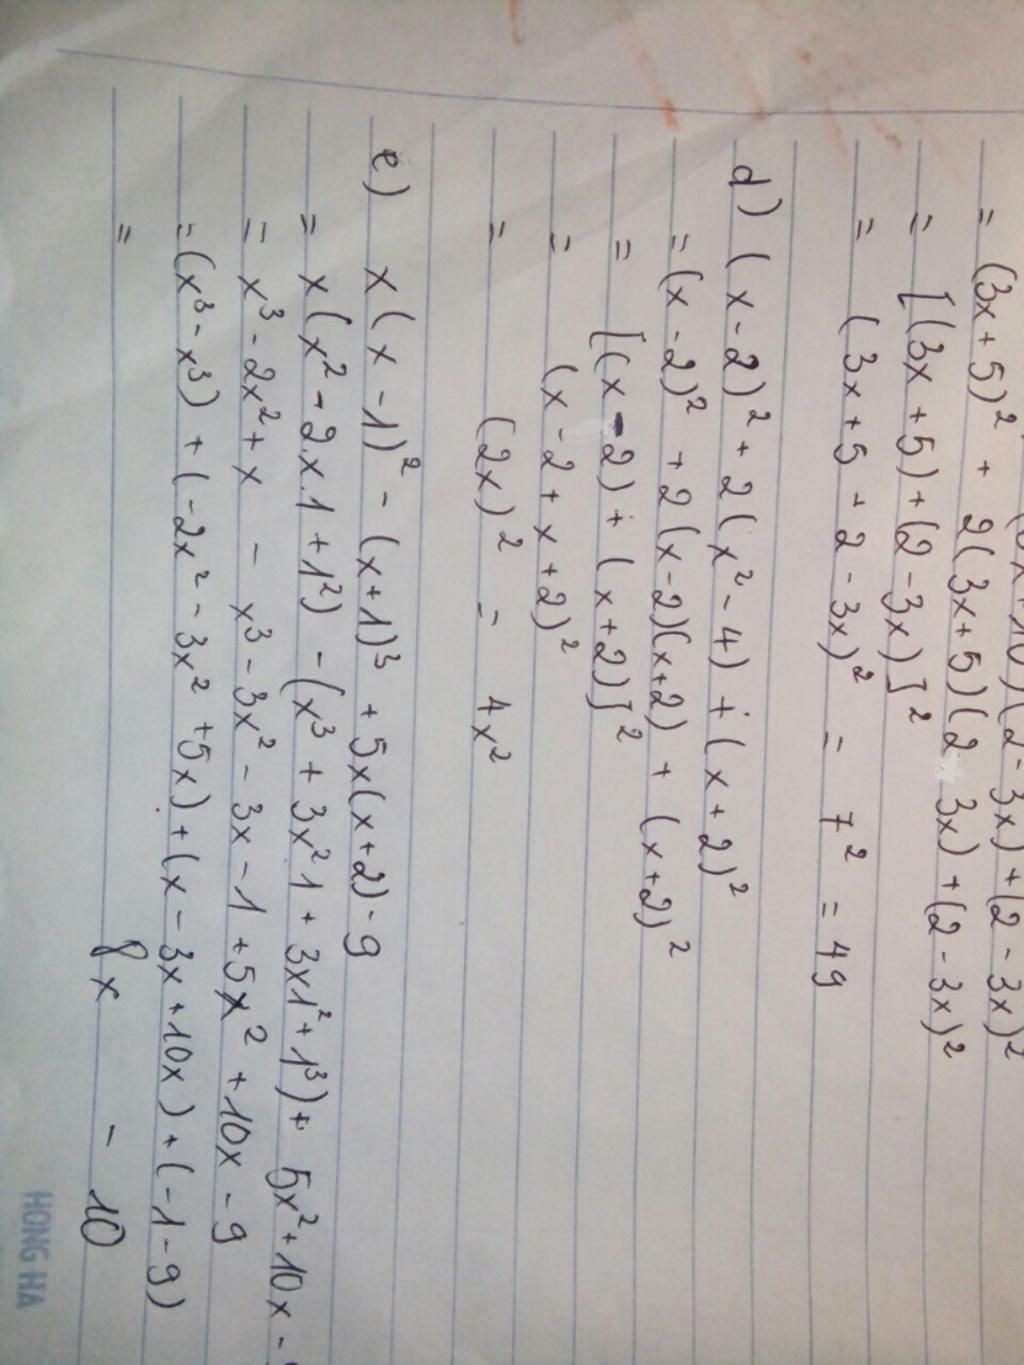 = (3x+5)² + 2(3x+5)(2 3x)+(2-3x)²
= [(3x+5)+(2-3x)]²
= (3x+5+2-3x)² = 7² = 49
d) (x-2)² + 2(x²-4) + (x+2)²
= (x-2)² + 2(x-2)(x+2) + (x+2)²
= [(x-2)+(x+2)]²
= (x-2+x+2)²
= (2x)² = 4x²
e) x(x-1)² - (x+1)³ + 5x(x+2)-9
= x(x²-2.x.1+1²) - (x³+3x²1+3x1²+1³)+ 5x²+10x-
= x³-2x²+x - x³-3x²-3x-1+5x²+10x-9
= (x³-x³)+(-2x²-3x²+5x)+(x-3x+10x)+(-1-9)
= 8x - 10
HONG HA